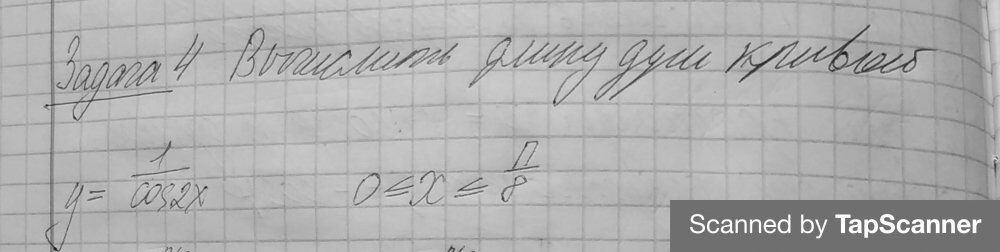 Задача 4 Вычислить длину дуги кривой
y = 1/cos2x 0 ≤ x ≤ π/8
Scanned by TapScanner